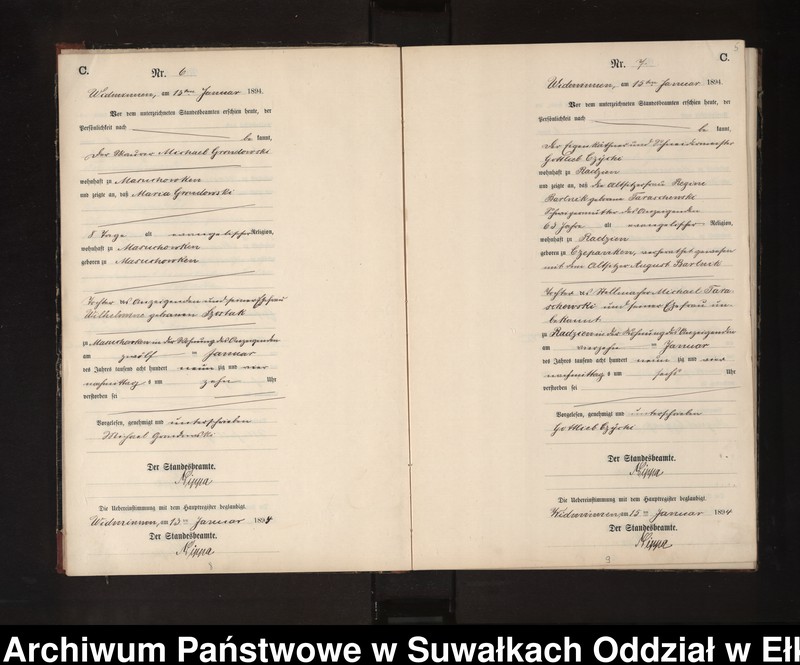 C.
Nr. 6
Widminnen, am 13ten Januar 1894.
Vor dem unterzeichneten Standesbeamten erschien heute, der
Persönlichkeit nach
be kannt,
der Maurer Michael Grondowski
wohnhaft zu Maruchowken
und zeigte an, daß Maria Grondowski
8 Tage alt evangelischer Religion,
wohnhaft zu Maruchowken
geboren zu Maruchowken
Tochter des Anzeigenden und seiner Ehefrau
Wilhelmine geborenen Szostak
zu Maruchowken in der Wohnung des Anzeigenden
am zwölften Januar
des Jahres tausend acht hundert neunzig und vier
nachmittags um zehn Uhr
verstorben sei
Vorgelesen, genehmigt und unterschrieben
Michael Grondowski
Der Standesbeamte.
Nippa
Die Uebereinstimmung mit dem Hauptregister beglaubigt.
Widminnen, am 13ten Januar 1894
Der Standesbeamte.
Nippa
C.
Nr. 7.
Widminnen, am 15ten Januar 1894.
Vor dem unterzeichneten Standesbeamten erschien heute, der
Persönlichkeit nach
be kannt,
der Eigenkäthner und Schneidermeister
Gottlieb Czycki
wohnhaft zu Radzien
und zeigte an, daß die Altsitzerfrau Regine
Bartnik geborene Taraschewski
Schwiegermutter des Anzeigenden
63 Jahre alt evangelischer Religion,
wohnhaft zu Radzien
geboren zu Czepanken, verheirathet gewesen
mit dem Altsitzer August Bartnik
Tochter des Stellmacher Michael Tara
schewski und seiner Ehefrau un-
bekannt.
zu Radzien in der Wohnung des Anzeigenden
am vierzehnten Januar
des Jahres tausend acht hundert neunzig und vier
nachmittags um sechs Uhr
verstorben sei
Vorgelesen, genehmigt und unterschrieben
Gottlieb Czycki
Der Standesbeamte.
Nippa
Die Uebereinstimmung mit dem Hauptregister beglaubigt.
Widminnen, am 15ten Januar 1894
Der Standesbeamte.
Nippa
Archiwum Państwowe w Suwałkach Oddział w Ełk